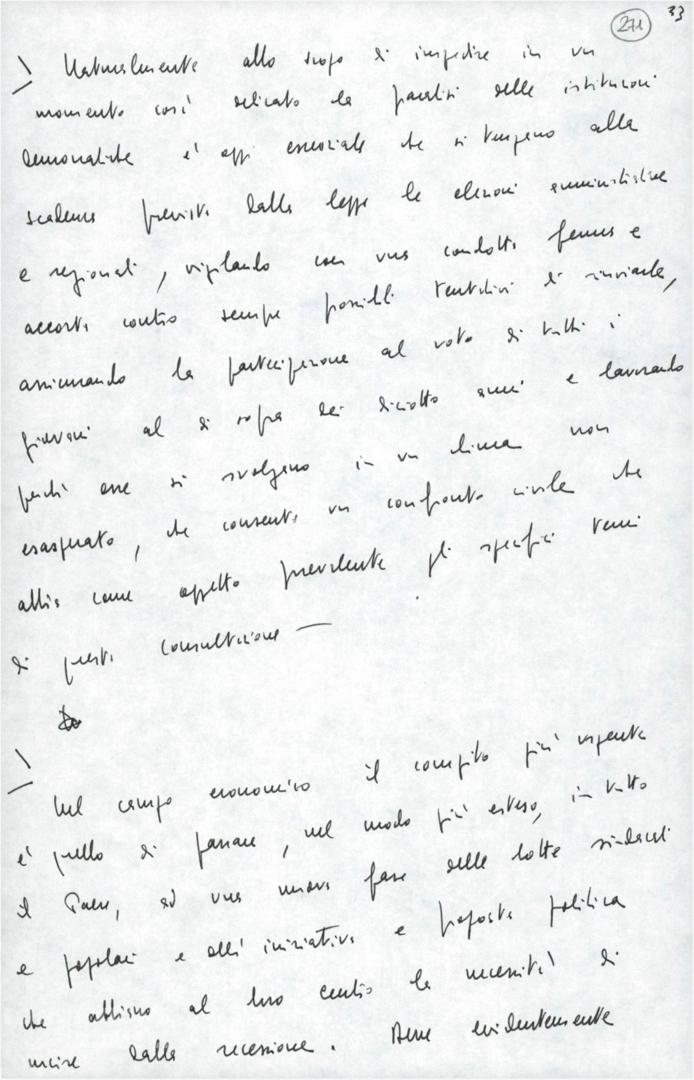 271
33
Naturalmente allo scopo di impedire in un
momento così delicato la paralisi delle istituzioni
democratiche è oggi essenziale che si tengano alla
scadenza prevista dalla legge le elezioni amministrative
e regionali, vigilando con una condotta ferma e
accorta contro sempre possibili tentativi di rinviarle,
assicurando la partecipazione al voto di tutti i
giovani al di sopra dei diciotto anni e lavorando
perché esse si svolgano in un clima non
esasperato, che consenta un confronto civile che
abbia come oggetto prevalente gli specifici temi
di questa consultazione —
Nel campo economico il compito più urgente
è quello di passare, nel modo più esteso, in tutto
il Paese, ad una nuova fase delle lotte sindacali
e popolari e all'iniziativa e proposta politica
che abbiano al loro centro la necessità di
uscire dalla recessione. Bene evidentemente